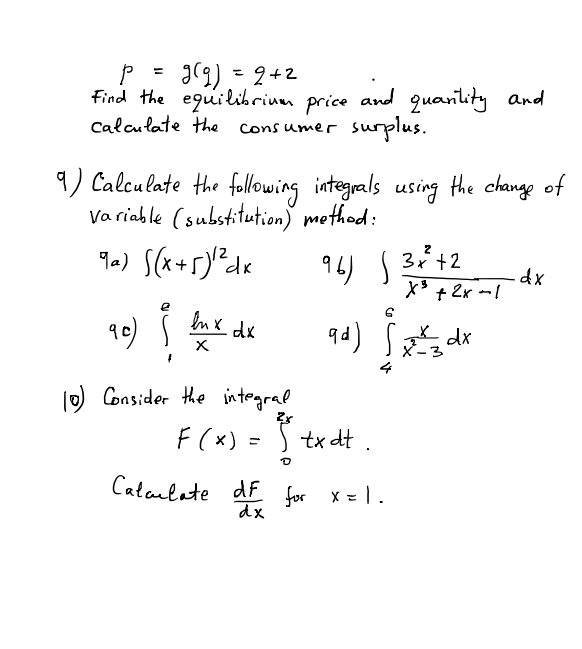 p = g(q) = q+2
Find the equilibrium price and quantity and
calculate the consumer surplus.
9) Calculate the following integrals using the change of
variable (substitution) method:
9a) ∫(x+5)¹²dx 9b) ∫ (3x²+2)/(x³+2x-1) dx
9c) ∫₁ᵉ (ln x)/x dx 9d) ∫₄⁶ x/(x²-3) dx
10) Consider the integral
F(x) = ∫₀²ˣ tx dt .
Calculate dF/dx for x=1.